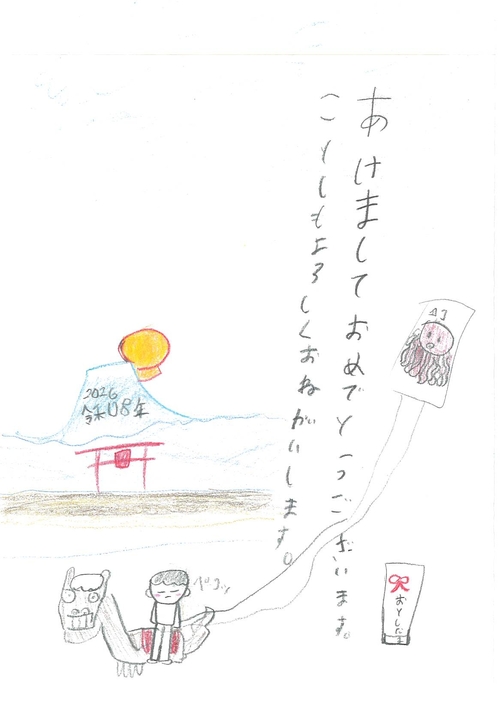 あけましておめでとうございます。
ことしもよろしくおねがいします。
2026
令和08年
ペコッ
おとしだま